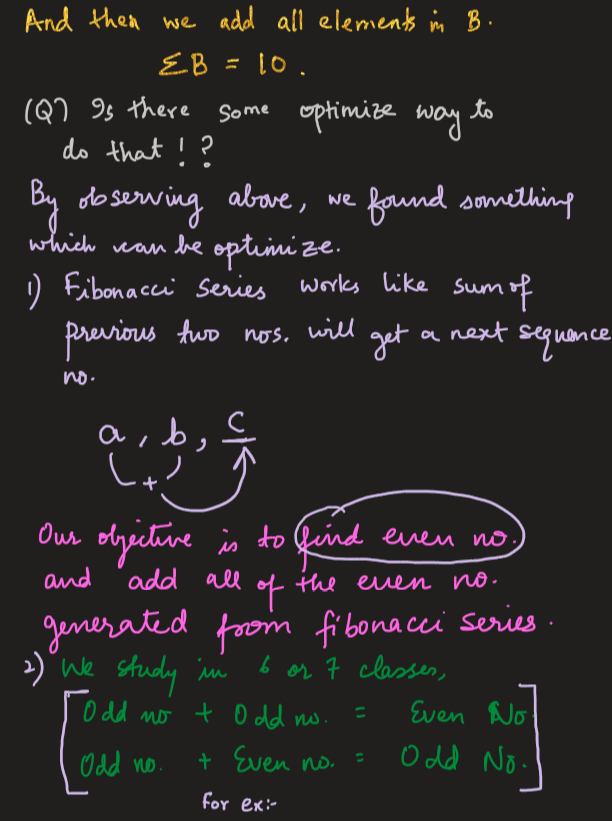 And then we add all elements in B.
ΣB = 10.
(Q) Is there some optimize way to
do that!?
By observing above, we found something
which can be optimize.
1) Fibonacci Series works like sum of
previous two nos. will get a next sequence
no.
a, b, c
+
Our objective is to find even no.
and add all of the even no.
generated from fibonacci series.
2) We study in 6 or 7 classes,
Odd no + Odd no. = Even No
Odd no. + Even no. = Odd No.
for ex:-